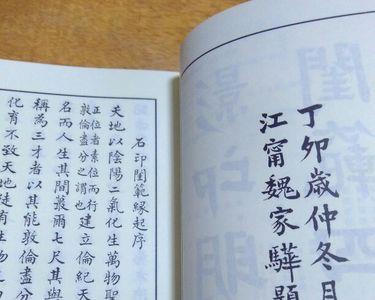 丁卯歲仲冬月
江甯魏家驊題
石印閨範緣起序
天地以陰陽二氣化生萬物聖
正位者素位而行
敦倫盡分之謂也建立倫紀天
名而人生其間藐爾七尺其與
稱為三才者以其能敦倫盡分
化育不致天地徒有生物